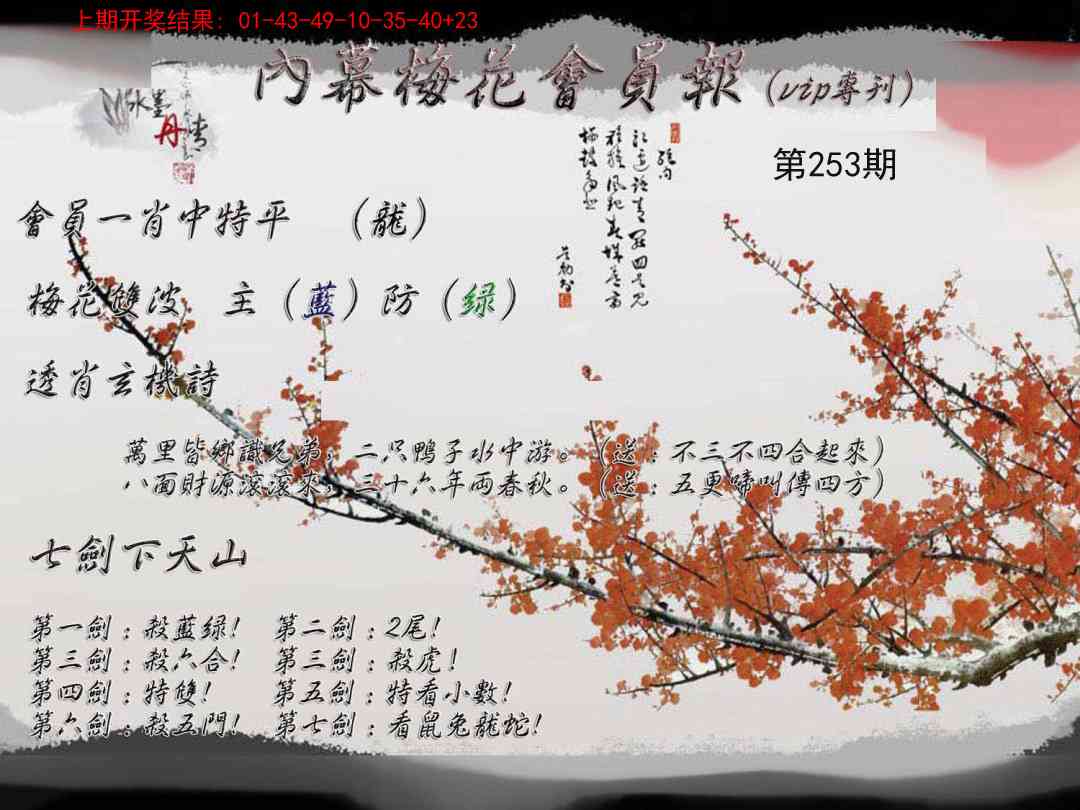 上期开奖结果: 01-43-49-10-35-40+23
內幕梅花會員報 (vip專刊)
水墨
丹情
第253期
會員一肖中特平 (龍)
梅花雙波 主(藍)防(绿)
透肖玄機詩
萬里皆鄉識兄弟，二只鴨子水中游。(送：不三不四合起來)
八面財源滾滾來，三十六年兩春秋。(送：五更啼叫傳四方)
七劍下天山
第一劍：殺藍绿! 第二劍：2尾!
第三劍：殺六合! 第三劍：殺虎!
第四劍：特雙! 第五劍：特看小數!
第六劍：殺五門! 第七劍：看鼠兔龍蛇!